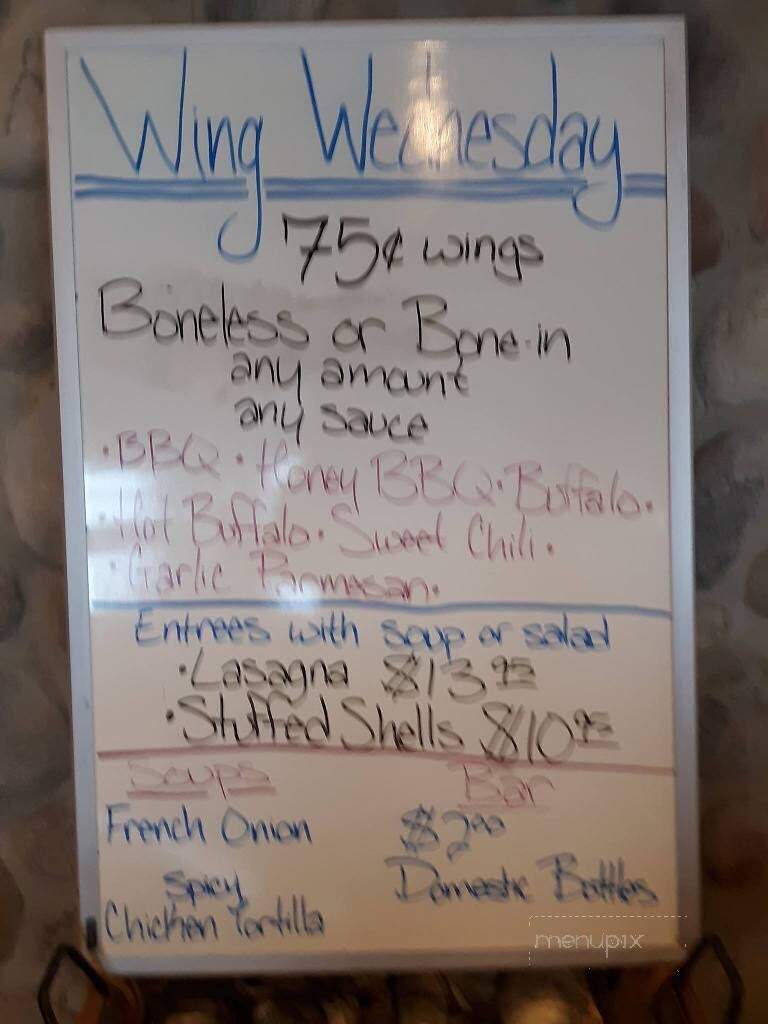 Wing Wednesday
75¢ wings
Boneless or Bone-in
any amount
any sauce
• BBQ • Honey BBQ • Buffalo •
• Hot Buffalo • Sweet Chili •
• Garlic Parmesan •
Entrees with soup or salad
• Lasagna $13.95
• Stuffed Shells $10.95
Soups
French Onion
Spicy
Chicken Tortilla
Bar
$2.00
Domestic Bottles
menupix